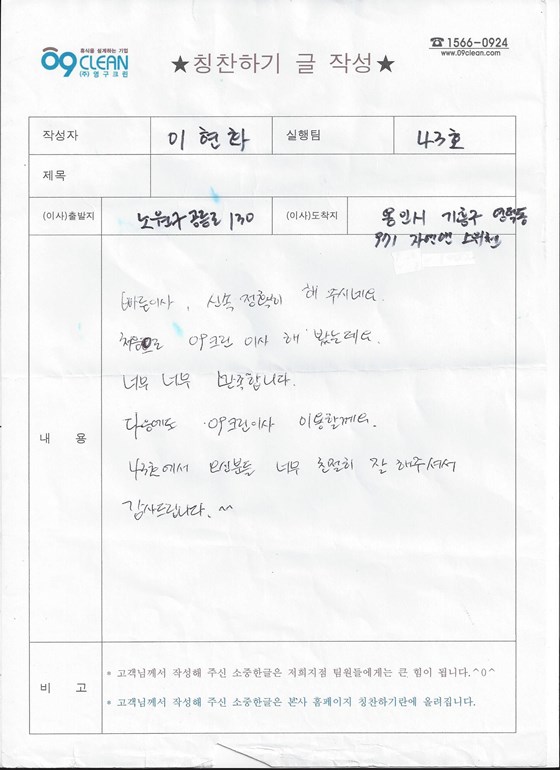 휴식을 설계하는 기업
09 CLEAN
(주) 영구크린
★칭찬하기 글 작성★
☎ 1566-0924
www.09clean.com
작성자 이현화 실행팀 43호
제목
(이사)출발지 노원구 공릉로 130 (이사)도착지 용인시 기흥구 영덕동
971 자연앤 스위첸
내 용
빠른이사, 신속 정확히 해 주시네요.
처음으로 09크린 이사 해 봤는데요.
너무 너무 만족합니다.
다음에도 09크린이사 이용할께요.
43호에서 오신분들 너무 친절히 잘 해주셔서
감사드립니다. ^^
비 고
* 고객님께서 작성해 주신 소중한글은 저희지점 팀원들에게는 큰 힘이 됩니다.^0^
* 고객님께서 작성해 주신 소중한글은 본사 홈페이지 칭찬하기란에 올려집니다.